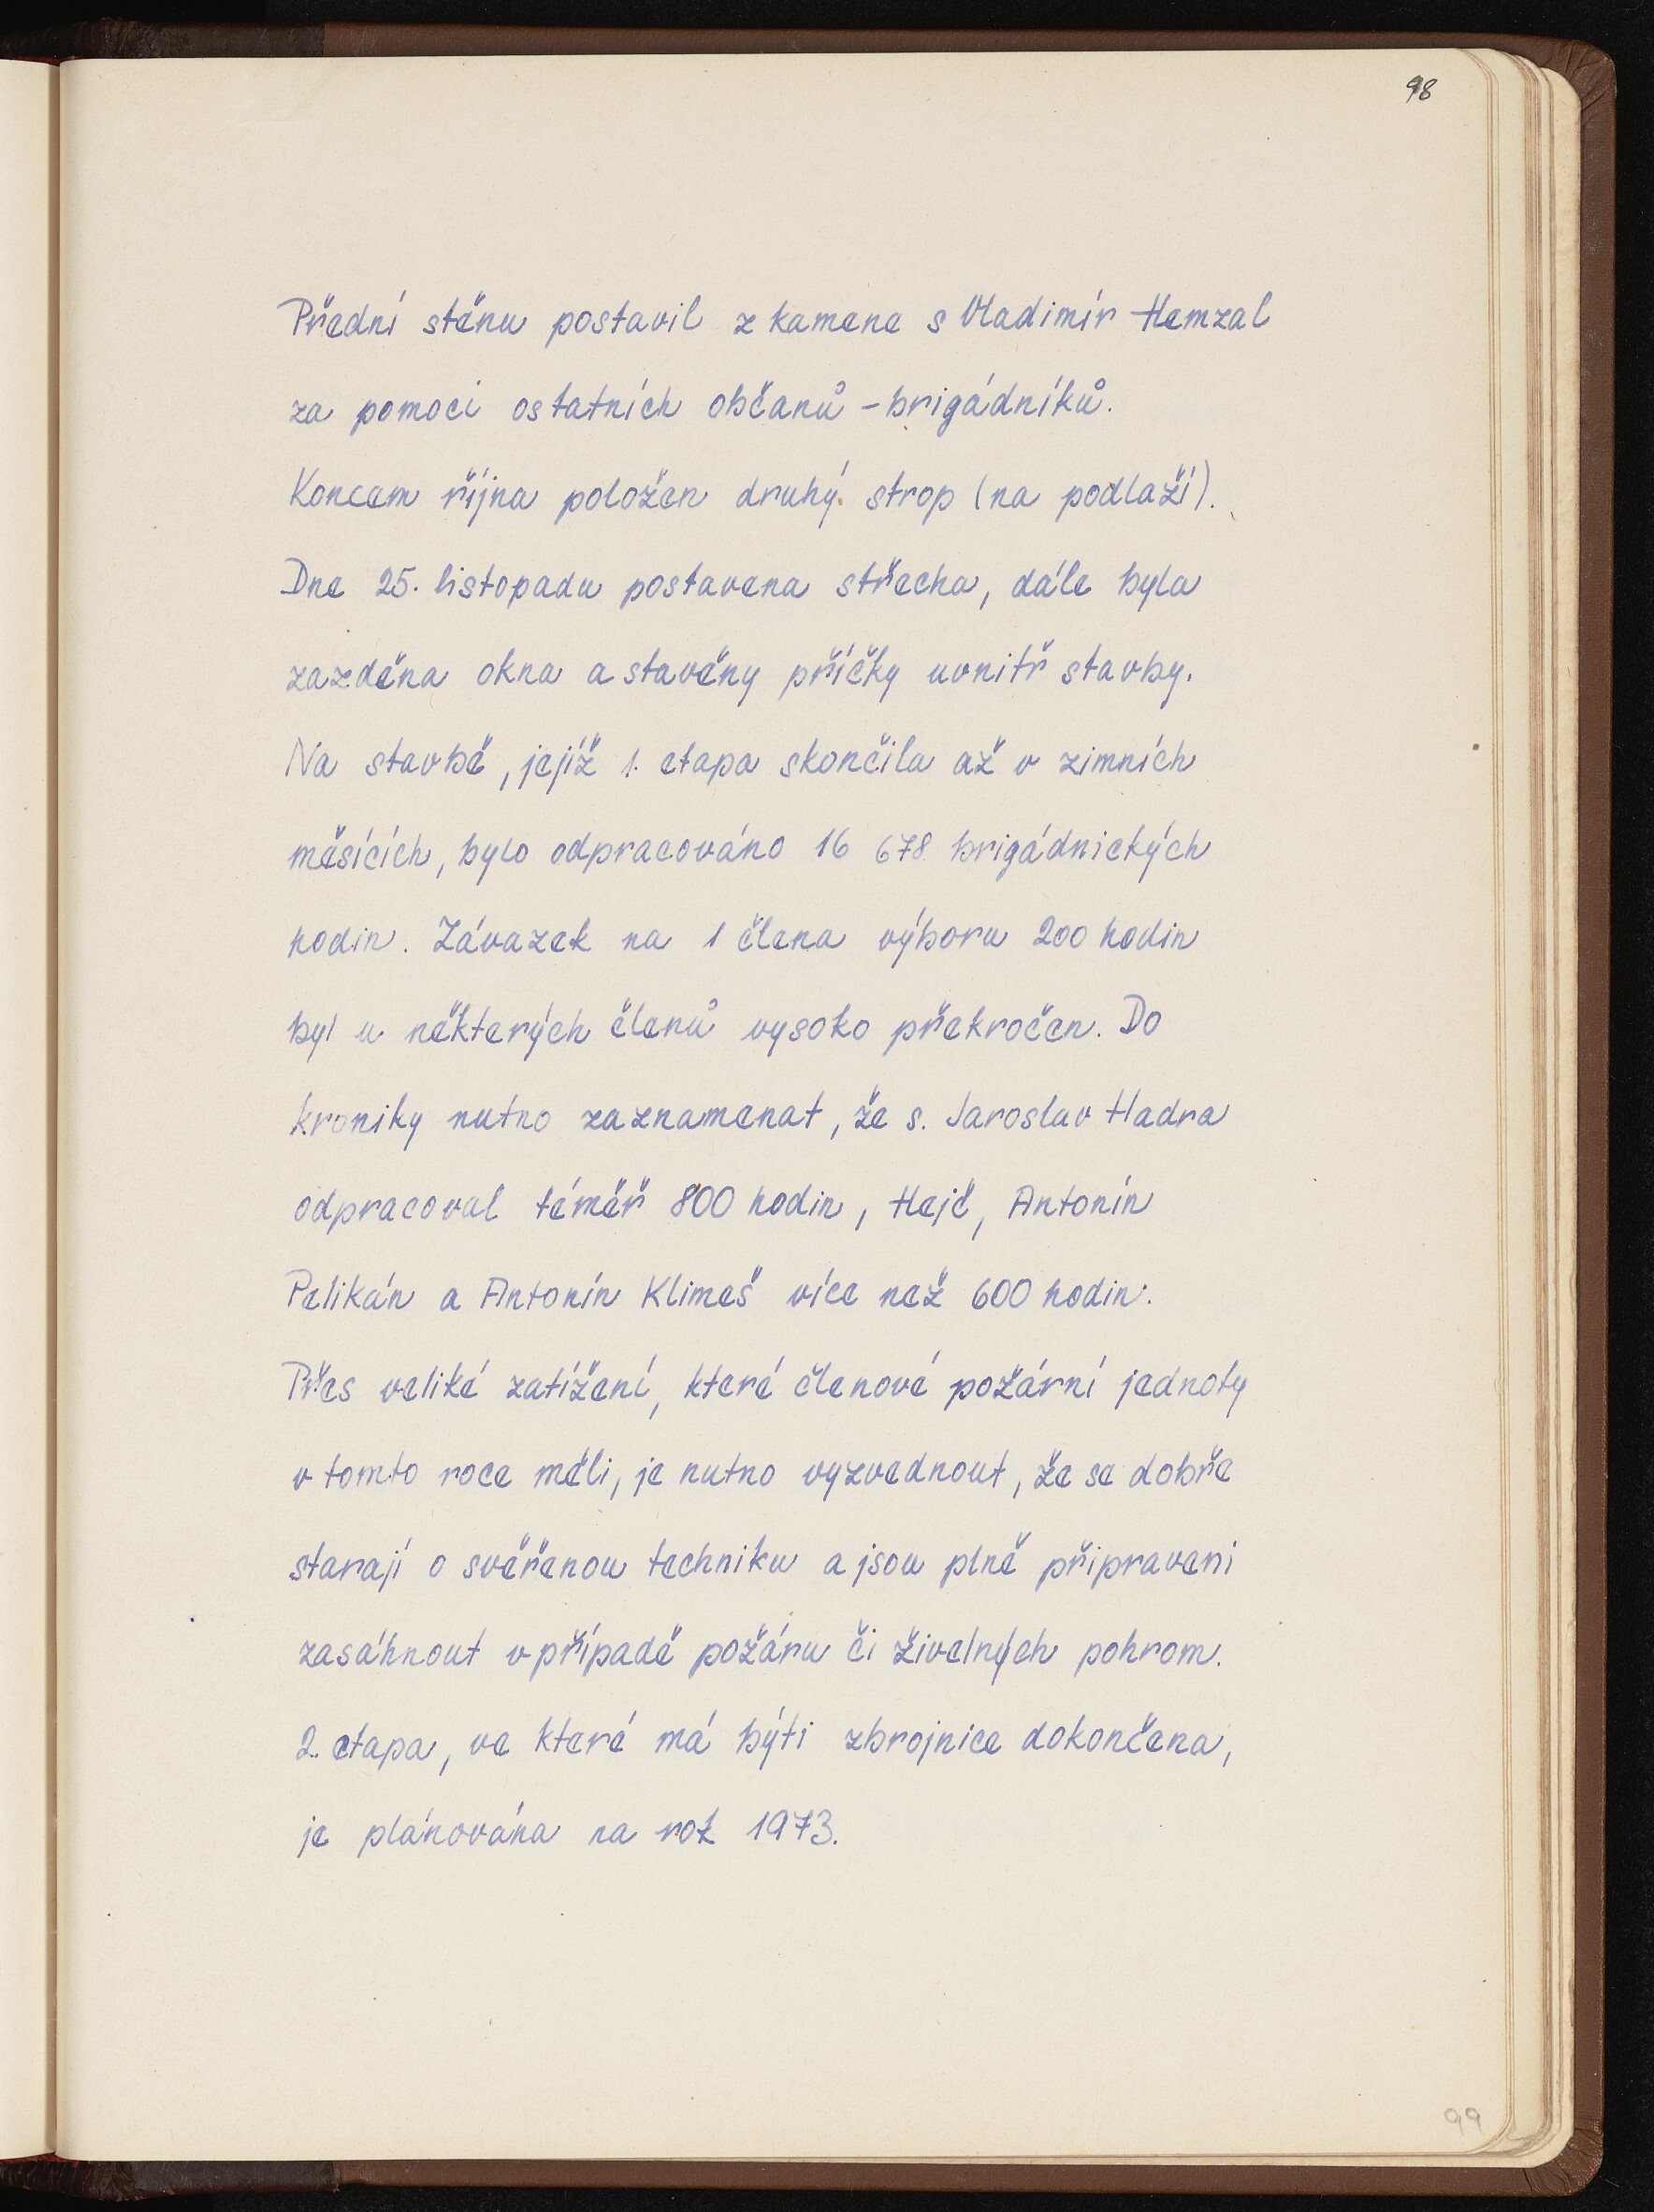 98
Přední stěnu postavil z kamene s Vladimír Hemzal
za pomoci ostatních občanů - brigádníků.
Koncem října položen druhý strop (na podlaží).
Dne 25. listopadu postavena střecha, dále byla
zazděna okna a stavěny příčky uvnitř stavby.
Na stavbě, jejíž 1. etapa skončila až v zimních
měsících, bylo odpracováno 16 678 brigádnických
hodin. Závazek na 1 člena výboru 200 hodin
byl u některých členů vysoko překročen. Do
kroniky nutno zaznamenat, že s. Jaroslav Hadra
odpracoval téměř 800 hodin, Hejč, Antonín
Pelikán a Antonín Klimeš více než 600 hodin.
Přes veliké zatížení, které členové požární jednoty
v tomto roce měli, je nutno vyzvednout, že se dobře
starají o svěřenou techniku a jsou plně připraveni
zasáhnout v případě požáru či živelných pohrom.
2. etapa, ve které má býti zbrojnice dokončena,
je plánována na rok 1973.
99